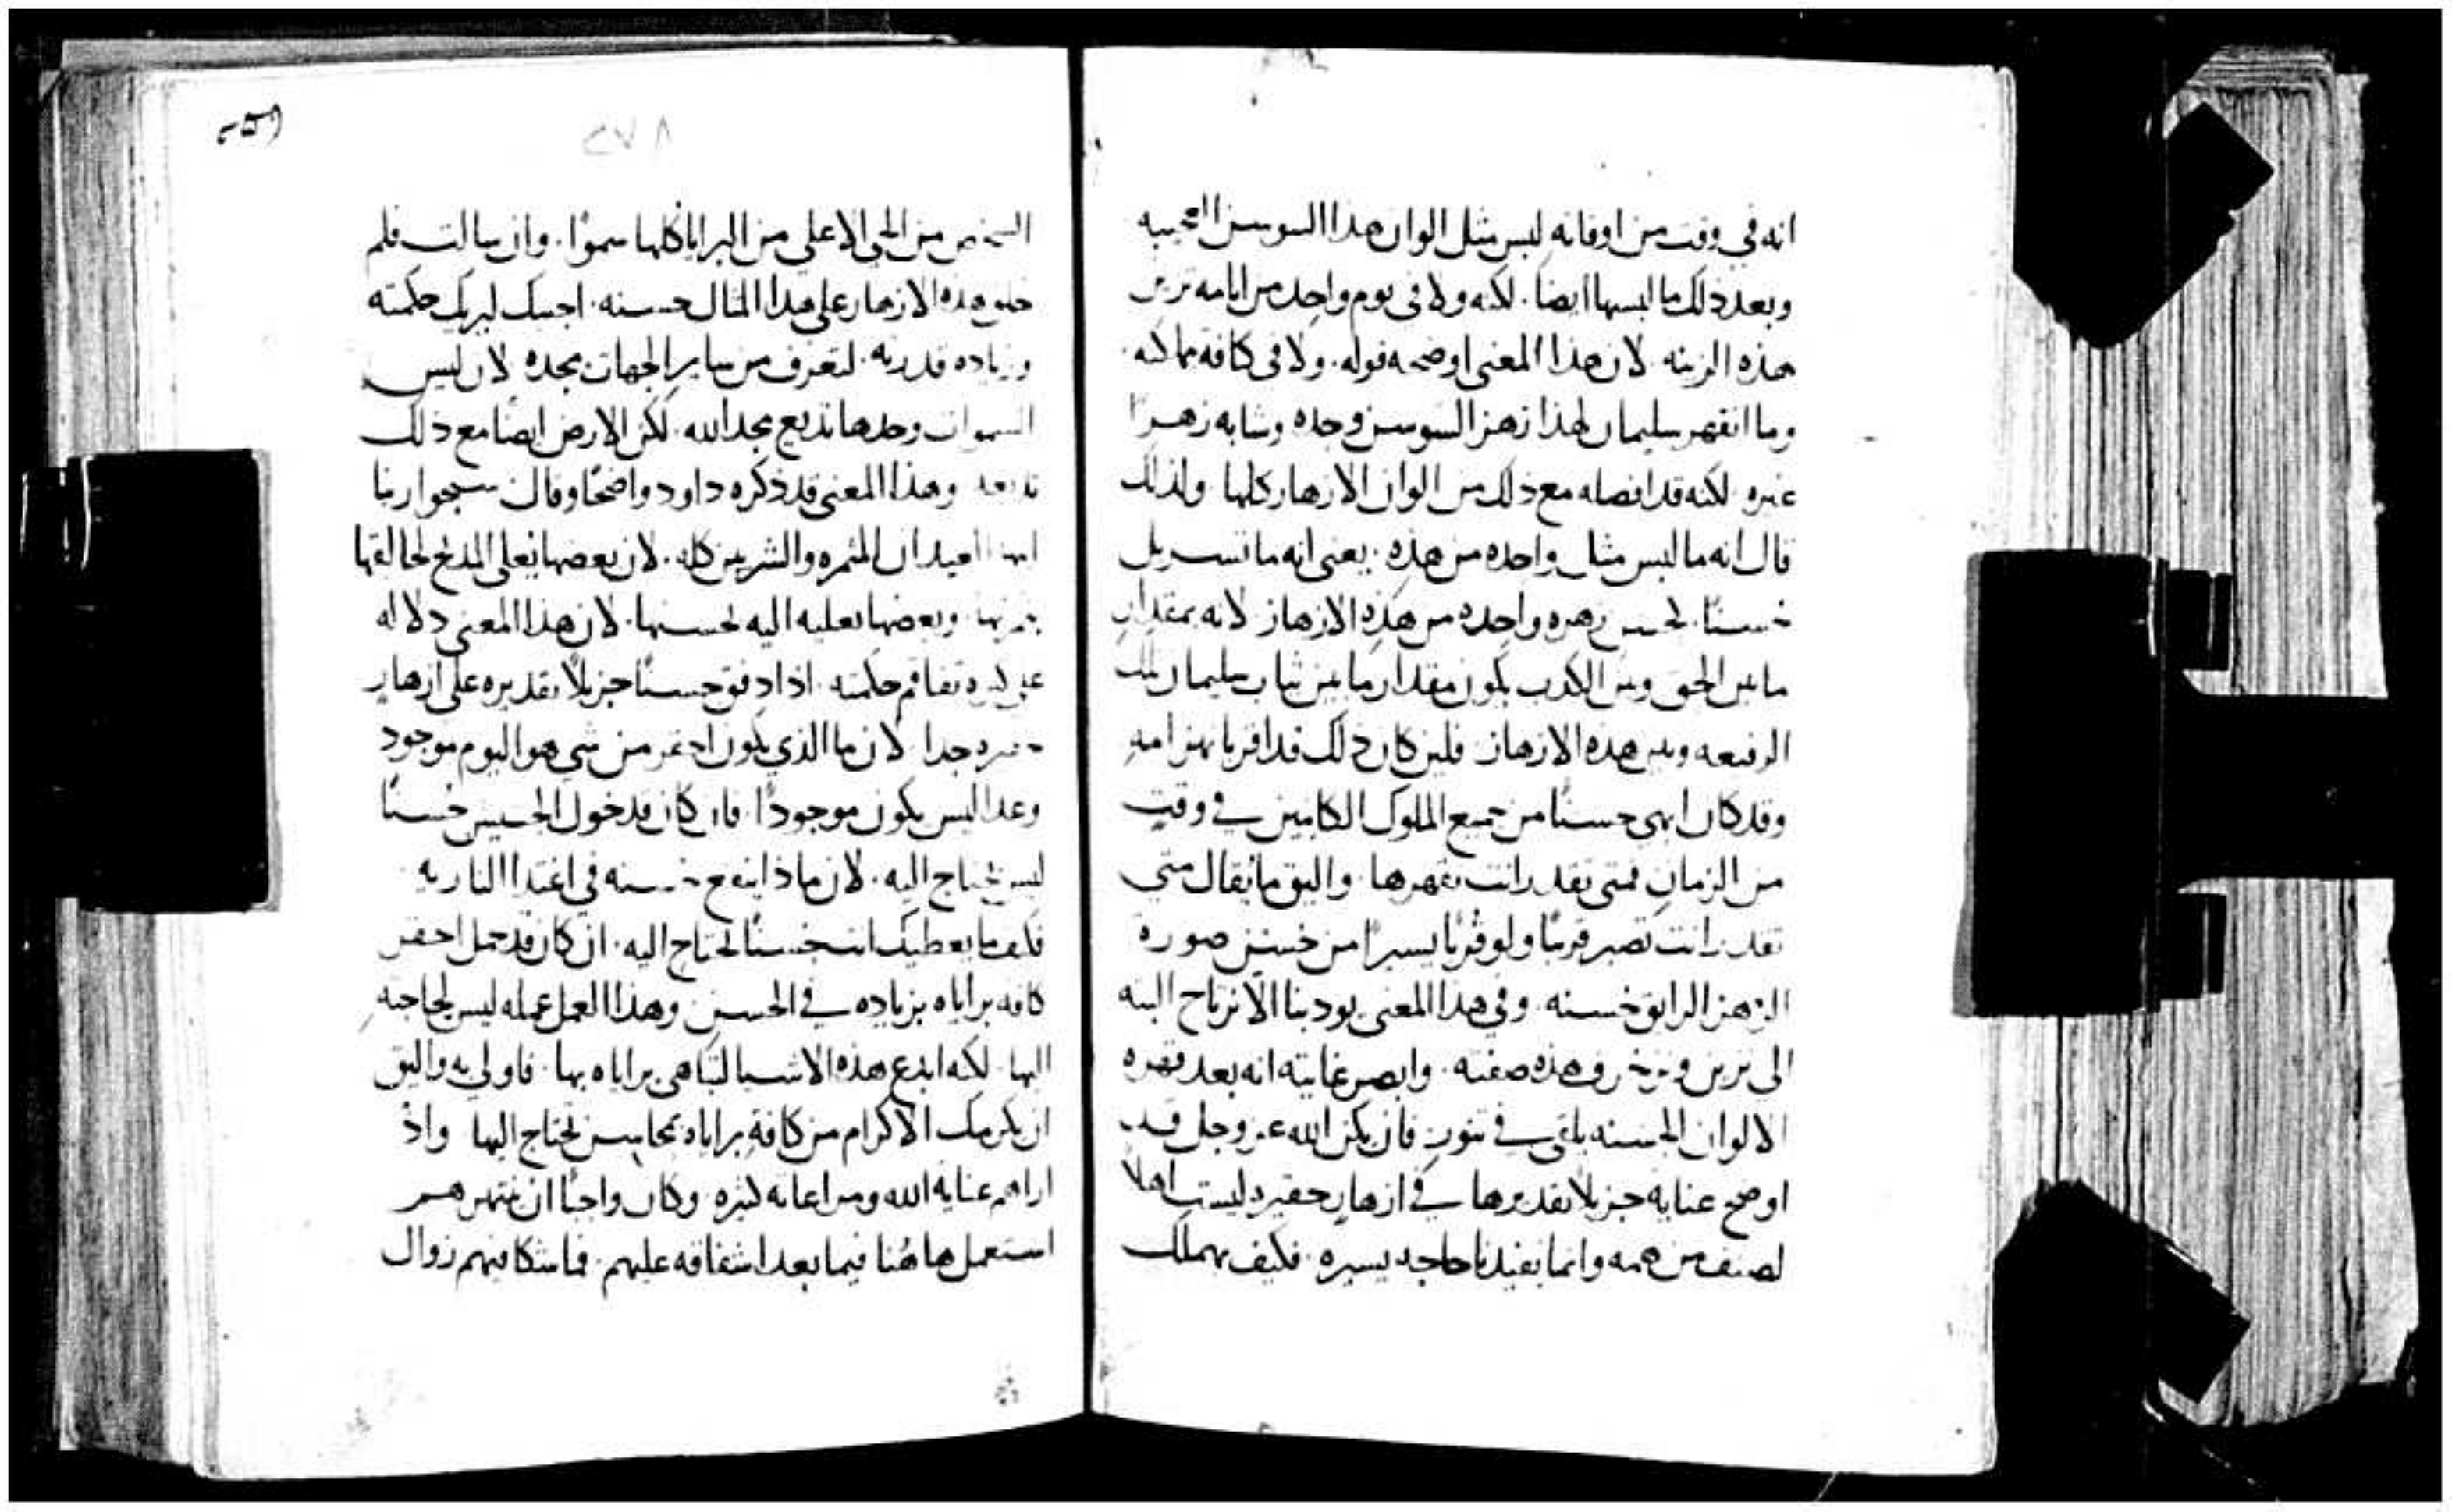 انه في وقت من اوقاته ليس مثل الوان هذا السوسن العجيبه
وبعد ذلك ما لبسها ايضا. لكنه ولا في يوم واحد من ايامه تزين
هذه الزينه لان هذا المعنى اوضحه قوله. ولا في كافة ممالكه.
وما انقهر سليمان لهذا زهر السوسن وحده وشابه زهرًا
غيره. لكنه قد افضله مع ذلك من الوان الازهار كلها ولذلك
قال انه ما لبس مثل واحده من هذه. يعني انه ما تسربل
حسنًا لحسن زهره واحده من هذه الازهار لانه بمقدار
ما بين الحق وبين الكذب يكون مقدار ما بين ثياب سليمان تلك
الرفيعه وبين هذه الازهار فلين كان ذلك قد اقر بانهزامه
وقد كان ابهى حسنًا من جميع الملوك الكاينين في وقت
من الزمان فمتى تقدر انت تقهرها. واليق ما يقال متى
تقدر انت تصير قريبًا ولو قربًا يسيرا من حسن صورة
الزهر الرايق حسنه. وفي هذا المعنى يودبنا الا نرتاح البته
الى تزين وتزخرف هذه صفته. وابصر غايته انه بعد قهره
الالوان الحسنه يلقى في تنور فان يكن الله عز وجل قد
اوضح عنايه جزيلا تقديرها في ازهار حقيره ليست اهلا
لصنف من همه وانما يفيدنا حاجه يسيره. فكيف يهملك
من الحي الاعلى من البرايا كلها سموًا. وان سالت فلم
خلق هذه الازهار على هذا المثال حسنه. اجبتك ليريك حكمته
وزياده قدرته. لتعرف من ساير الجهات مجده لان ليس
السموات وحدها تذيع مجد الله. لكن الارض ايضا مع ذلك
تذيعه وهذا المعنى قد ذكره داود واضحًا وقال سبحوا ربنا
ايها العيدان المثمره والشربين كله. لان بعضها يعلي المدح لخالقها
بثمرتها وبعضها تعليه اليه لحسنها. لان هذا المعنى دلاله
على كثره تفاقم حكمته. اذا دفق حسنًا جزيلًا تقديره على ازهار
حقيره جدا لان ما الذي يكون احقر من شي هو اليوم موجود
وغدا ليس يكون موجودًا. فان كان قد خول الحشيش حسنًا
ليس يحتاج اليه. لان ماذا ينفع حسنه في اغتدا الناريه.
فكيف ما يعطيك انت حسنًا تحتاج اليه. ان كان قد جمل احقر
كافه براياه بزياده في الحسن وهذا العمل عمله ليس لحاجته
اليها. لكنه ابدع هذه الاشيا لتباهي براياه بها. فاولى به واليق
ان يكرمك الاكرام من كافة براياه بمحاسن تحتاج اليها واذ
اراهم عناية الله ومراعاته كثيره وكان واجبًا ان ينتهرهم
استعمل هاهُنا فيما بعد اشفاقه عليهم. فما شكا فيهم زوال